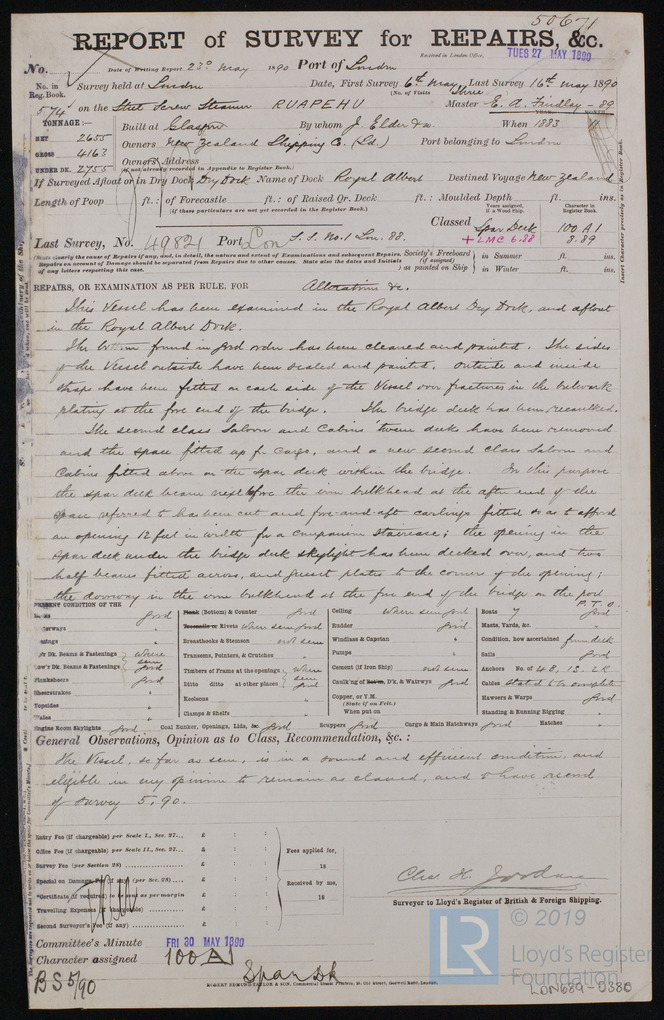 50671
REPORT of SURVEY for REPAIRS, &c.
Received in London Office, TUES 27 MAY 1890
No. Date of Writing Report 23d May 1890 Port of London
No. in Reg. Book. Survey held at London Date, First Survey 6th May Last Survey 16th May 1890
(No. of Visits Three
574 on the Steel Screw Steamer RUAPEHU Master E. A. Findlay - 89
TONNAGE:- Built at Glasgow By whom J. Elder & Co YEAR. MONTH. When 1883 11
NET 2655
GROSS 4163 Owners New Zealand Shipping Co. (Ld.) Port belonging to London
UNDER DK. 2755 Owners' Address
(if not already recorded in Appendix to Register Book.)
If Surveyed Afloat or in Dry Dock Dry Dock Name of Dock Royal Albert Destined Voyage New Zealand
Length of Poop ft.: of Forecastle ft.: of Raised Qr. Deck ft.: Moulded Depth ft. ins.
(If these particulars are not yet recorded in the Register Book.)
Years assigned, if a Wood Ship. Character in Register Book.
Classed Spar Deck 100 A1
+ LMC 6.88 8.89
Last Survey, No. 49821 Port Lon S.S. No. 1 Lon. 88.
Society's Freeboard (if assigned) as painted on Ship in Summer ft. ins.
in Winter ft. ins.
Insert Character precisely as in Register Book.
REPAIRS, OR EXAMINATION AS PER RULE, FOR Alterations &c.
This Vessel has been examined in the Royal Albert Dry Dock, and afloat
in the Royal Albert Dock.
The bottom found in good order has been cleaned and painted. The sides
of the Vessel outside have been scaled and painted. Outside and inside
straps have been fitted on each side of the Vessel over fractures in the bulwark
plating at the fore end of the bridge. The bridge deck has been recaulked.
The second class Saloon and Cabins 'tween decks have been removed
and the space fitted up for cargo, and a new second class Saloon and
Cabins fitted above on the spar deck within the bridge. For this purpose
the spar deck beam next before the iron bulkhead at the after end of the
space referred to has been cut and fore-and-aft carlings fitted so as to afford
an opening 12 feet in width for a Companion staircase; the opening in the
spar deck under the bridge deck skylight has been decked over, and two
half beams fitted across, and gusset plates to the corners of the opening;
the doorway in the iron bulkhead at the fore end of the bridge on the port
P.T.O.
PRESENT CONDITION OF THE
good
Plank (Bottom) & Counter good
Ceiling where seen good
Boats 7 good
Treenails or Rivets where seen good
Rudder good
Masts, Yards, &c.
Breasthooks & Stemson not seen
Windlass & Capstan "
Condition, how ascertained from deck
Dk. Beams & Fastenings where seen good
Transoms, Pointers, & Crutches "
Pumps "
Sails good
Low'r Dk. Beams & Fastenings
Timbers of Frame at the openings where seen good
Cement (if Iron Ship) not seen
Anchors No. of 4B, 1S. 2K
Plankshears good
Ditto ditto at other places
Caulk'ng of Bottom, D'k, & Watrwys good
Cables stated to be complete
Sheerstrakes "
Keelsons "
Copper, or Y.M. (State if on Felt.)
Hawsers & Warps good
Topsides "
Clamps & Shelfs "
When put on
Standing & Running Rigging "
Wales "
Engine Room Skylights good Coal Bunker, Openings, Lids, &c. good Scuppers good Cargo & Main Hatchways good Hatches "
General Observations, Opinion as to Class, Recommendation, &c.:
The Vessel, so far as seen, is in a sound and efficient condition, and
eligible in my opinion to remain as classed, and to have record
of survey 5.90.
Entry Fee (if chargeable) per Scale I., Sec. 27... £ : :
Office Fee (if chargeable) per Scale II., Sec. 27... £ : :
Survey Fee (per Section 28) £ : :
Special or Damage Fee if any (per Sec. 28) £ : :
Certificate (if required) to be sent as per margin
Travelling Expenses (if chargeable) £ : :
Second Surveyor's Fee (if any) £ : :
Fees applied for,
18
Received by me,
18
Surveyor to Lloyd's Register of British & Foreign Shipping.
Committee's Minute FRI 30 MAY 1890
Character assigned 100 A1
Spar Dk
BS 5/90
ROBERT EDMUND TAYLOR & SON,
LR © 2019
Lloyd's Register
Foundation
LON689-0380